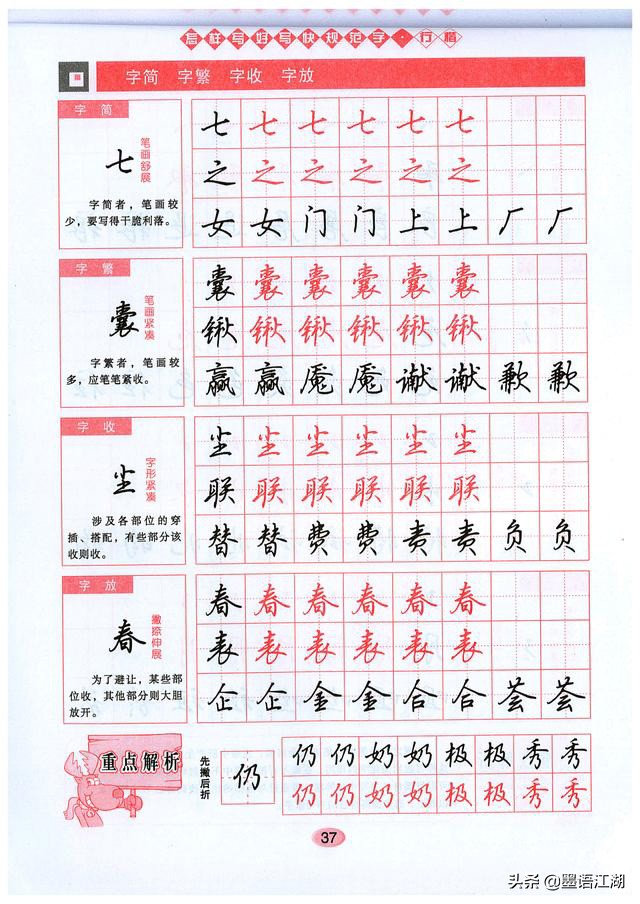 怎样写好写快规范字·行楷
字简 字繁 字收 字放
字简
七
笔画舒展
字简者，笔画较
少，要写得干脆利落。
七 七 七 七 七 七
之 之 之 之 之 之
女 女 门 门 上 上 厂 厂
字繁
囊
笔画紧凑
字繁者，笔画较
多，应笔笔紧收。
囊 囊 囊 囊 囊 囊
锹 锹 锹 锹 锹 锹
赢 赢 魇 魇 谳 谳 歉 歉
字收
尘
字形紧凑
涉及各部位的穿
插、搭配，有些部分该
收则收。
尘 尘 尘 尘 尘 尘
联 联 联 联 联 联
替 替 费 费 责 责 负 负
字放
春
撇捺伸展
为了避让，某些部
位收，其他部分则大胆
放开。
春 春 春 春 春 春
表 表 表 表 表 表
企 企 金 金 合 合 荟 荟
重点解析
先撇后折
仍
仍 仍 奶 奶 极 极 秀 秀
仍 仍 奶 奶 极 极 秀 秀
37
头条 @墨语江湖